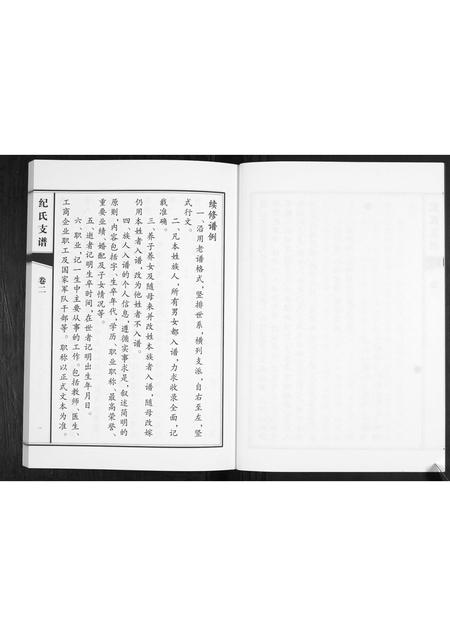 续修谱例
一、沿用老谱格式，竖排世系，横列支派，自右至左，竖
式行文。
二、凡本姓族人，所有男女都入谱，力求收录全面，记
载准确。
三、养子养女及随母来并改姓本族者入谱，随母改嫁
仍用本姓者入谱，改为他姓者不入谱。
四、族人入谱的个人信息，遵循实事求是，叙述简明的
原则，内容包括字，生卒年代，学历、职业职称、最高荣誉、
重要业绩、婚配及子女情况等。
五、逝者记明生卒时间，在世者记明出生年月日。
六、职业，记一生中主要从事的工作。包括教师、医生、
工商企业职工及国家军队干部等。职称以正式文本为准。
纪氏支谱
卷二